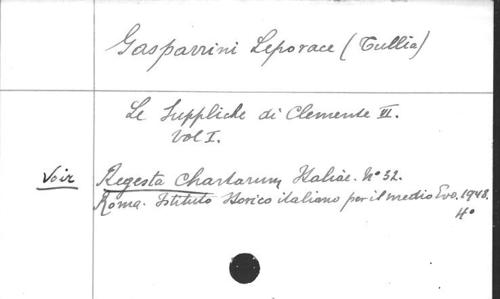 Gasparrini Leporace (Tullia)
Le Suppliche di Clemente VI.
Vol I.
Voir Regesta Chartarum Italiae. N° 32.
Roma. Istituto Storico italiano per il medio Evo. 1948.
4°